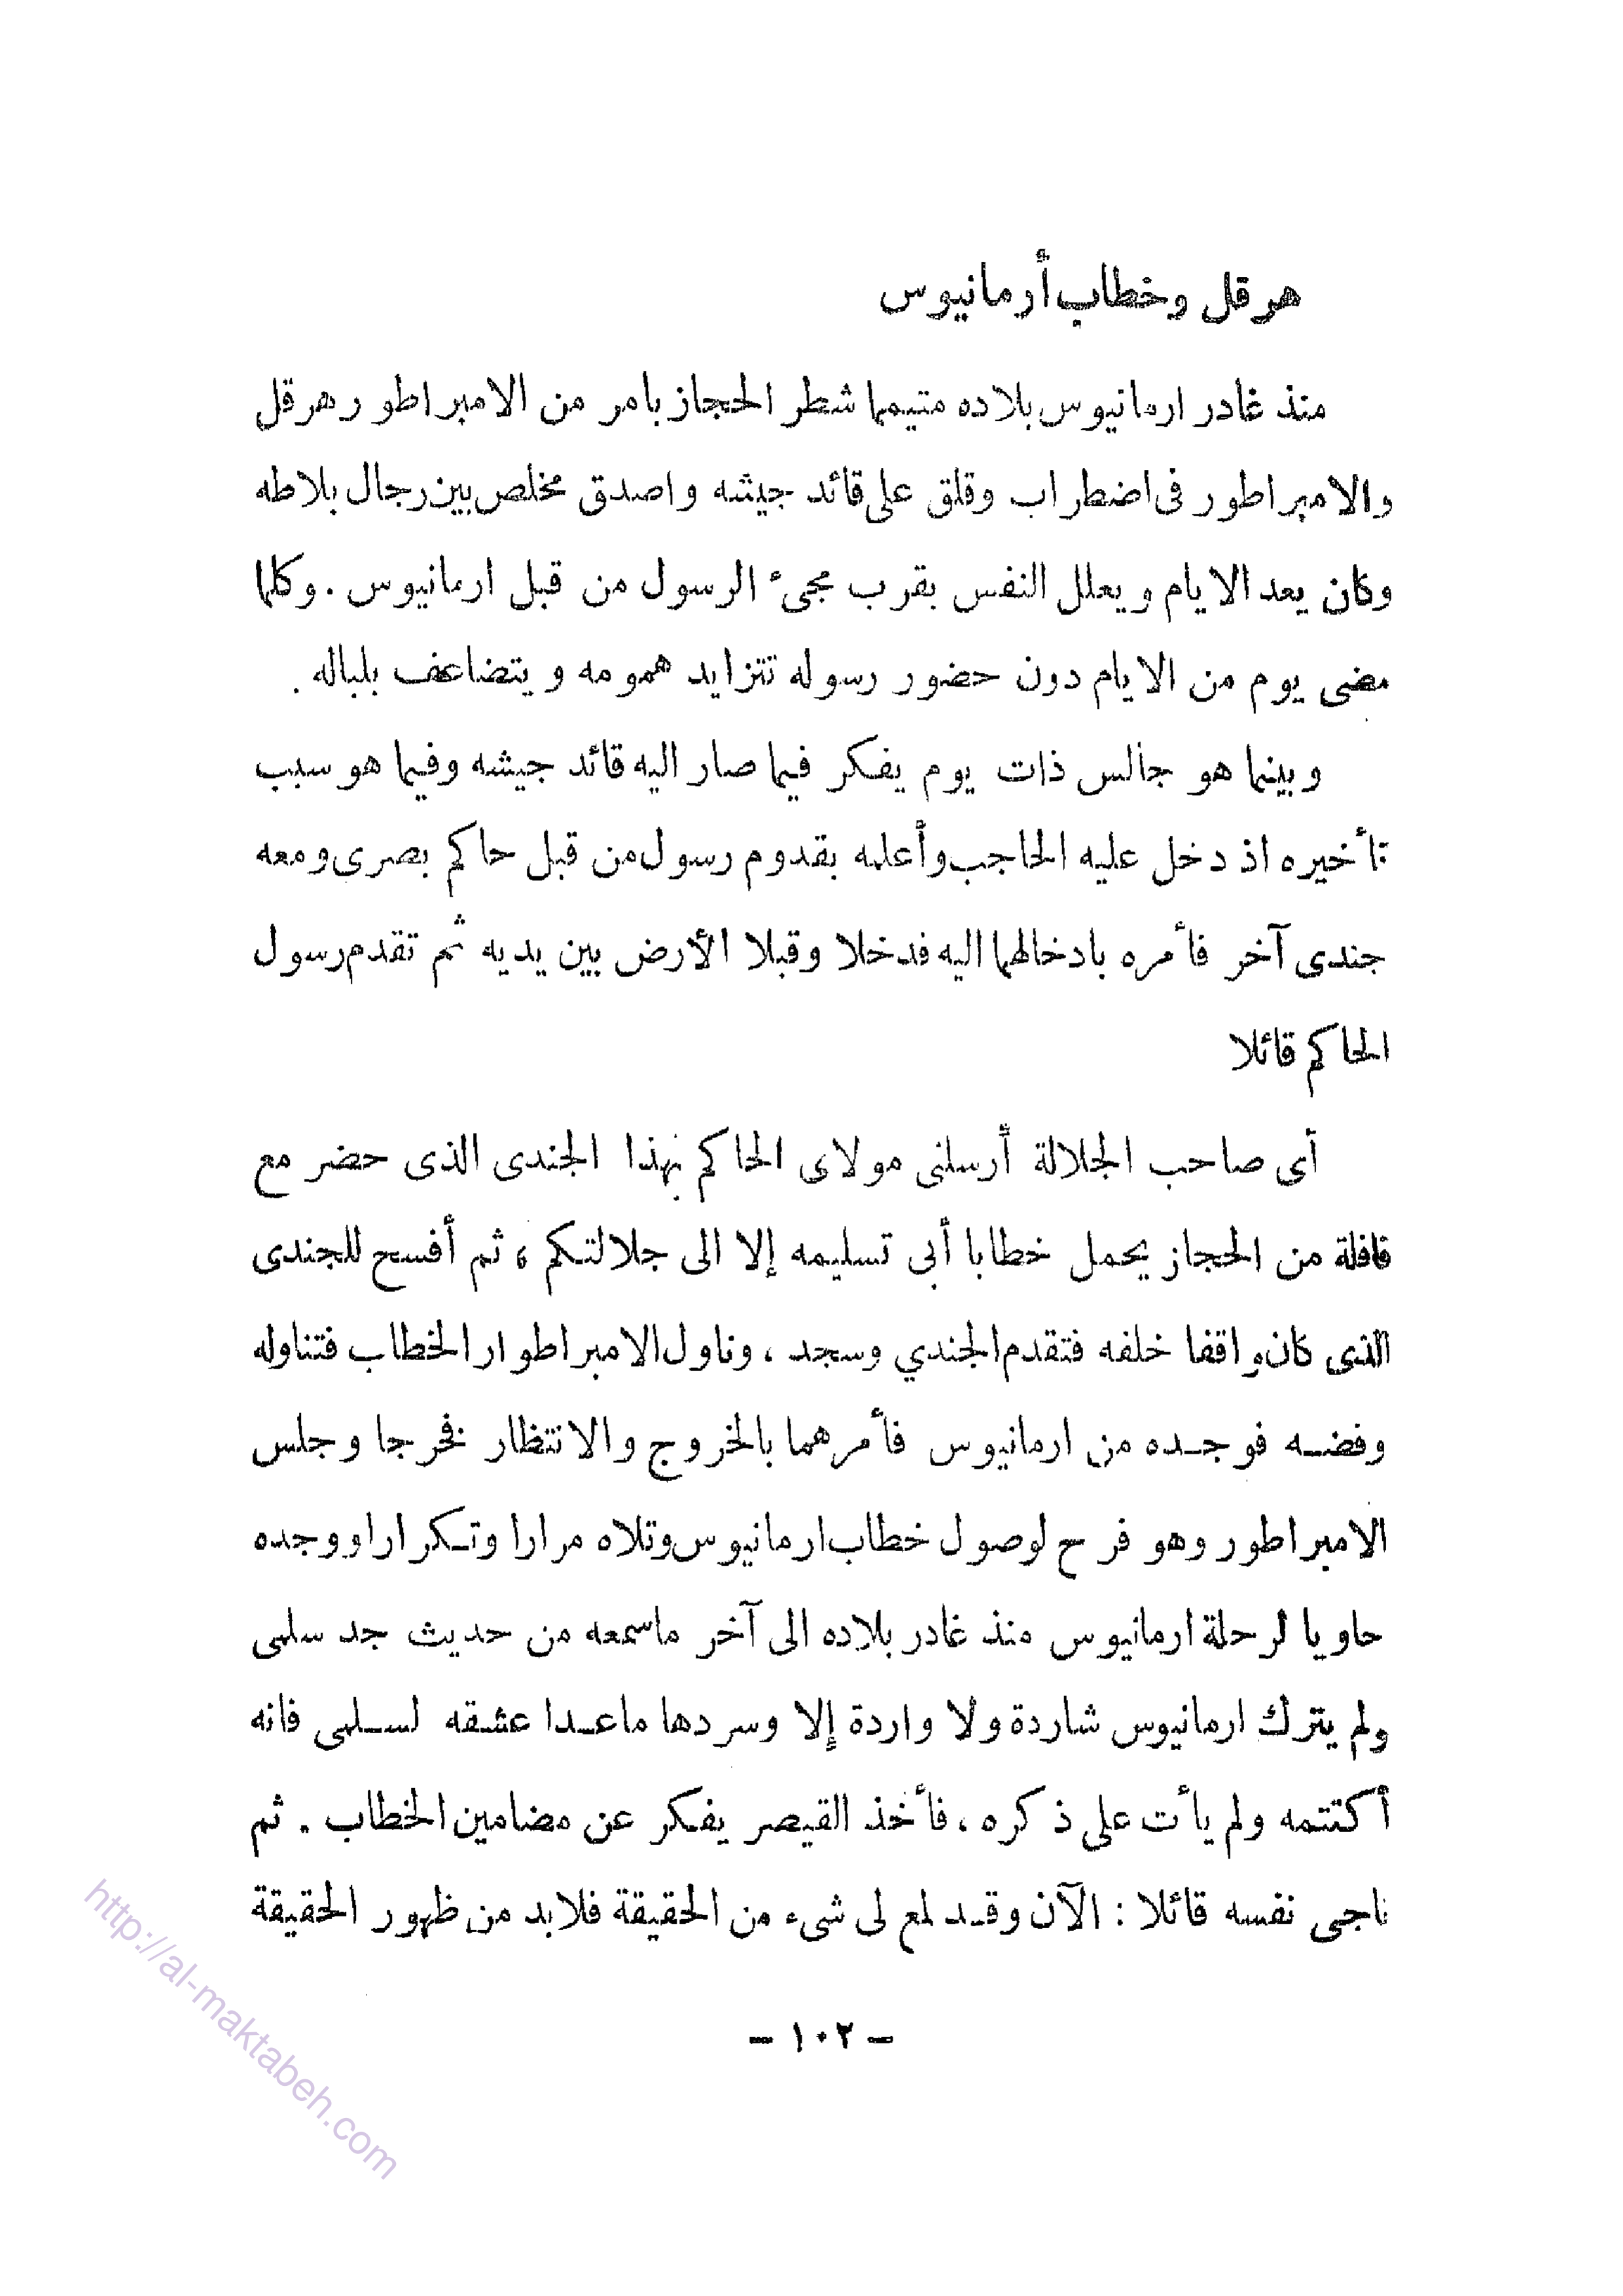 هرقل وخطاب أرمانيوس
منذ غادر ارمانيوس بلاده متيمما شطر الحجاز بامر من الامبراطور هرقل
والامبراطور فى اضطراب وقلق على قائد جيشه واصدق مخلص بين رجال بلاطه
وكان يعد الايام ويعلل النفس بقرب مجىء الرسول من قبل ارمانيوس . وكلما
مضى يوم من الايام دون حضور رسوله تتزايد همومه ويتضاعف بلباله .
وبينما هو جالس ذات يوم يفكر فيما صار اليه قائد جيشه وفيما هو سبب
تأخيره اذ دخل عليه الحاجب وأعلمه بقدوم رسول من قبل حاكم بصرى ومعه
جندى آخر فأمره بادخالهما اليه فدخلا وقبلا الأرض بين يديه ثم تقدم رسول
الحاكم قائلا
أى صاحب الجلالة أرسلنى مولاى الحاكم بهذا الجندى الذى حضر مع
قافلة من الحجاز يحمل خطابا أبى تسليمه إلا الى جلالتكم ، ثم أفسح للجندى
الذى كان واقفا خلفه فتقدم الجندي وسجد ، وناول الامبراطوار الخطاب فتناوله
وفضه فوجده من ارمانيوس فأمرهما بالخروج والانتظار فخرجا وجلس
الامبراطور وهو فرح لوصول خطاب ارمانيوس وتلاه مرارا وتكرارا ووجده
حاويا لرحلة ارمانيوس منذ غادر بلاده الى آخر ماسمعه من حديث جد سلمى
ولم يترك ارمانيوس شاردة ولا واردة إلا وسردها ماعدا عشقه لسلمى فانه
أكتتمه ولم يأت على ذكره ، فأخذ القيصر يفكر عن مضامين الخطاب . ثم
ناجى نفسه قائلا : الآن وقد لمع لى شىء من الحقيقة فلابد من ظهور الحقيقة
– ١٠٢ –
http://al-maktabeh.com